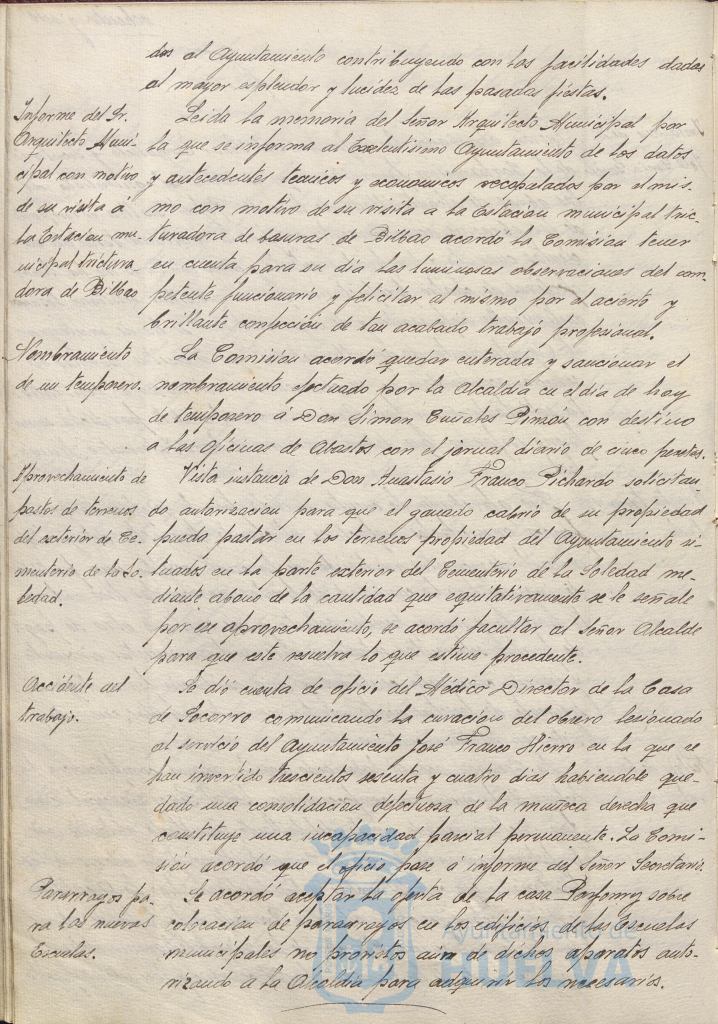 dos al Ayuntamiento contribuyendo con las facilidades dadas
al mayor esplendor y lucidez de las pasadas fiestas.
Informe del Sr.
Arquitecto Muni-
cipal con motivo
de su visita á
la Estacion mu-
nicipal tritura-
dora de Bilbao
Leida la memoria del Señor Arquitecto Municipal por
la que se informa al Excelentisimo Ayuntamiento de los datos
y antecedentes tecnicos y economicos recopalados por el mis-
mo con motivo de su visita a la Estacion municipal tric-
turadora de basuras de Bilbao acordó la Comision tener
en cuenta para su dia las luminosas observaciones del com-
petente funcionario y felicitar al mismo por el acierto y
brillante confección de tan acabado trabajo profesional.
Nombramiento
de un temporero.
La Comisión acordó quedar enterada y sancionar el
nombramiento efectuado por la Alcaldia en el dia de hoy
de temporero á Don Simon Pinzón con destino
a las Oficinas de Abastos con el jornal diario de cinco pesetas.
Aprovechamiento de
pastos de terrenos
del exterior de Ce-
menterio de la So-
ledad.
Vista instancia de Don Anastasio Franco Pichardo solicitan-
do autorizacion para que el ganado cabrio de su propiedad
pueda pastar en los terrenos propiedad del Ayuntamiento si-
tuados en la parte exterior del Cementerio de la Soledad me-
diante abono de la cantidad que equitativamente se le señale
por ese aprovechamiento, se acordó facultar al Señor Alcalde
para que este resuelva lo que estime procedente.
Accidente del
trabajo.
Se dió cuenta de oficio del Médico Director de la Casa
de Socorro comunicando la curacion del obrero lesionado
al servicio del Ayuntamiento José Franco Hierro en la que se
han invertido trescientos sesenta y cuatro dias habiendole que-
dado una consolidacion defectuosa de la muñeca derecha que
constituye una incapacidad parcial permanente. La Comi-
sion acordó que el oficio pase á informe del Señor Secretario.
Pararrayos pa-
ra las nuevas
Escuelas.
Se acordó aceptar la oferta de la casa sobre
colocacion de pararrayos en los edificios de las Escuelas
municipales no provistos aun de dichos aparatos auto-
rizando a la Alcaldia para adquirir los necesarios.
Ayuntamiento de
HUELVA